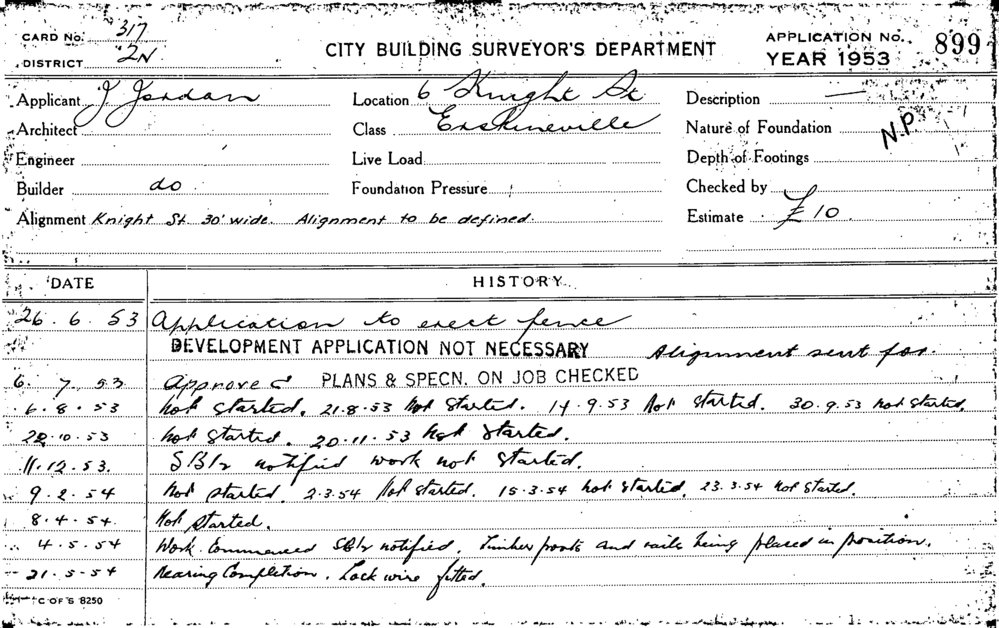 CARD No. 317
DISTRICT 2N
CITY BUILDING SURVEYOR'S DEPARTMENT
APPLICATION No. 899
YEAR 1953
Applicant J Jordan
Location 6 Knight St
Description —
Architect
Class Erskineville
Nature of Foundation
N.P.
Engineer
Live Load
Depth of Footings
Builder do
Foundation Pressure
Checked by
Alignment Knight St 30' wide. Alignment to be defined.
Estimate £10
DATE HISTORY
26. 6. 53 Application to erect fence
DEVELOPMENT APPLICATION NOT NECESSARY Alignment sent for.
6. 7. 53 Approved PLANS & SPECN. ON JOB CHECKED
6. 8. 53 Not Started. 21.8.53 Not Started. 14.9.53 Not Started. 30.9.53 Not Started.
22.10.53 Not Started. 20.11.53 Not Started.
11.12.53. notified work not Started.
9. 2. 54 Not Started. 2.3.54 Not Started. 15.3.54 Not Started. 23.3.54 Not Started.
8. 4. 54. Not Started.
4. 5. 54 Work Commenced notified. Timber posts and rails being placed in position.
21. 5. 54 Nearing Completion. Lock wire fitted.
C OF S 8250